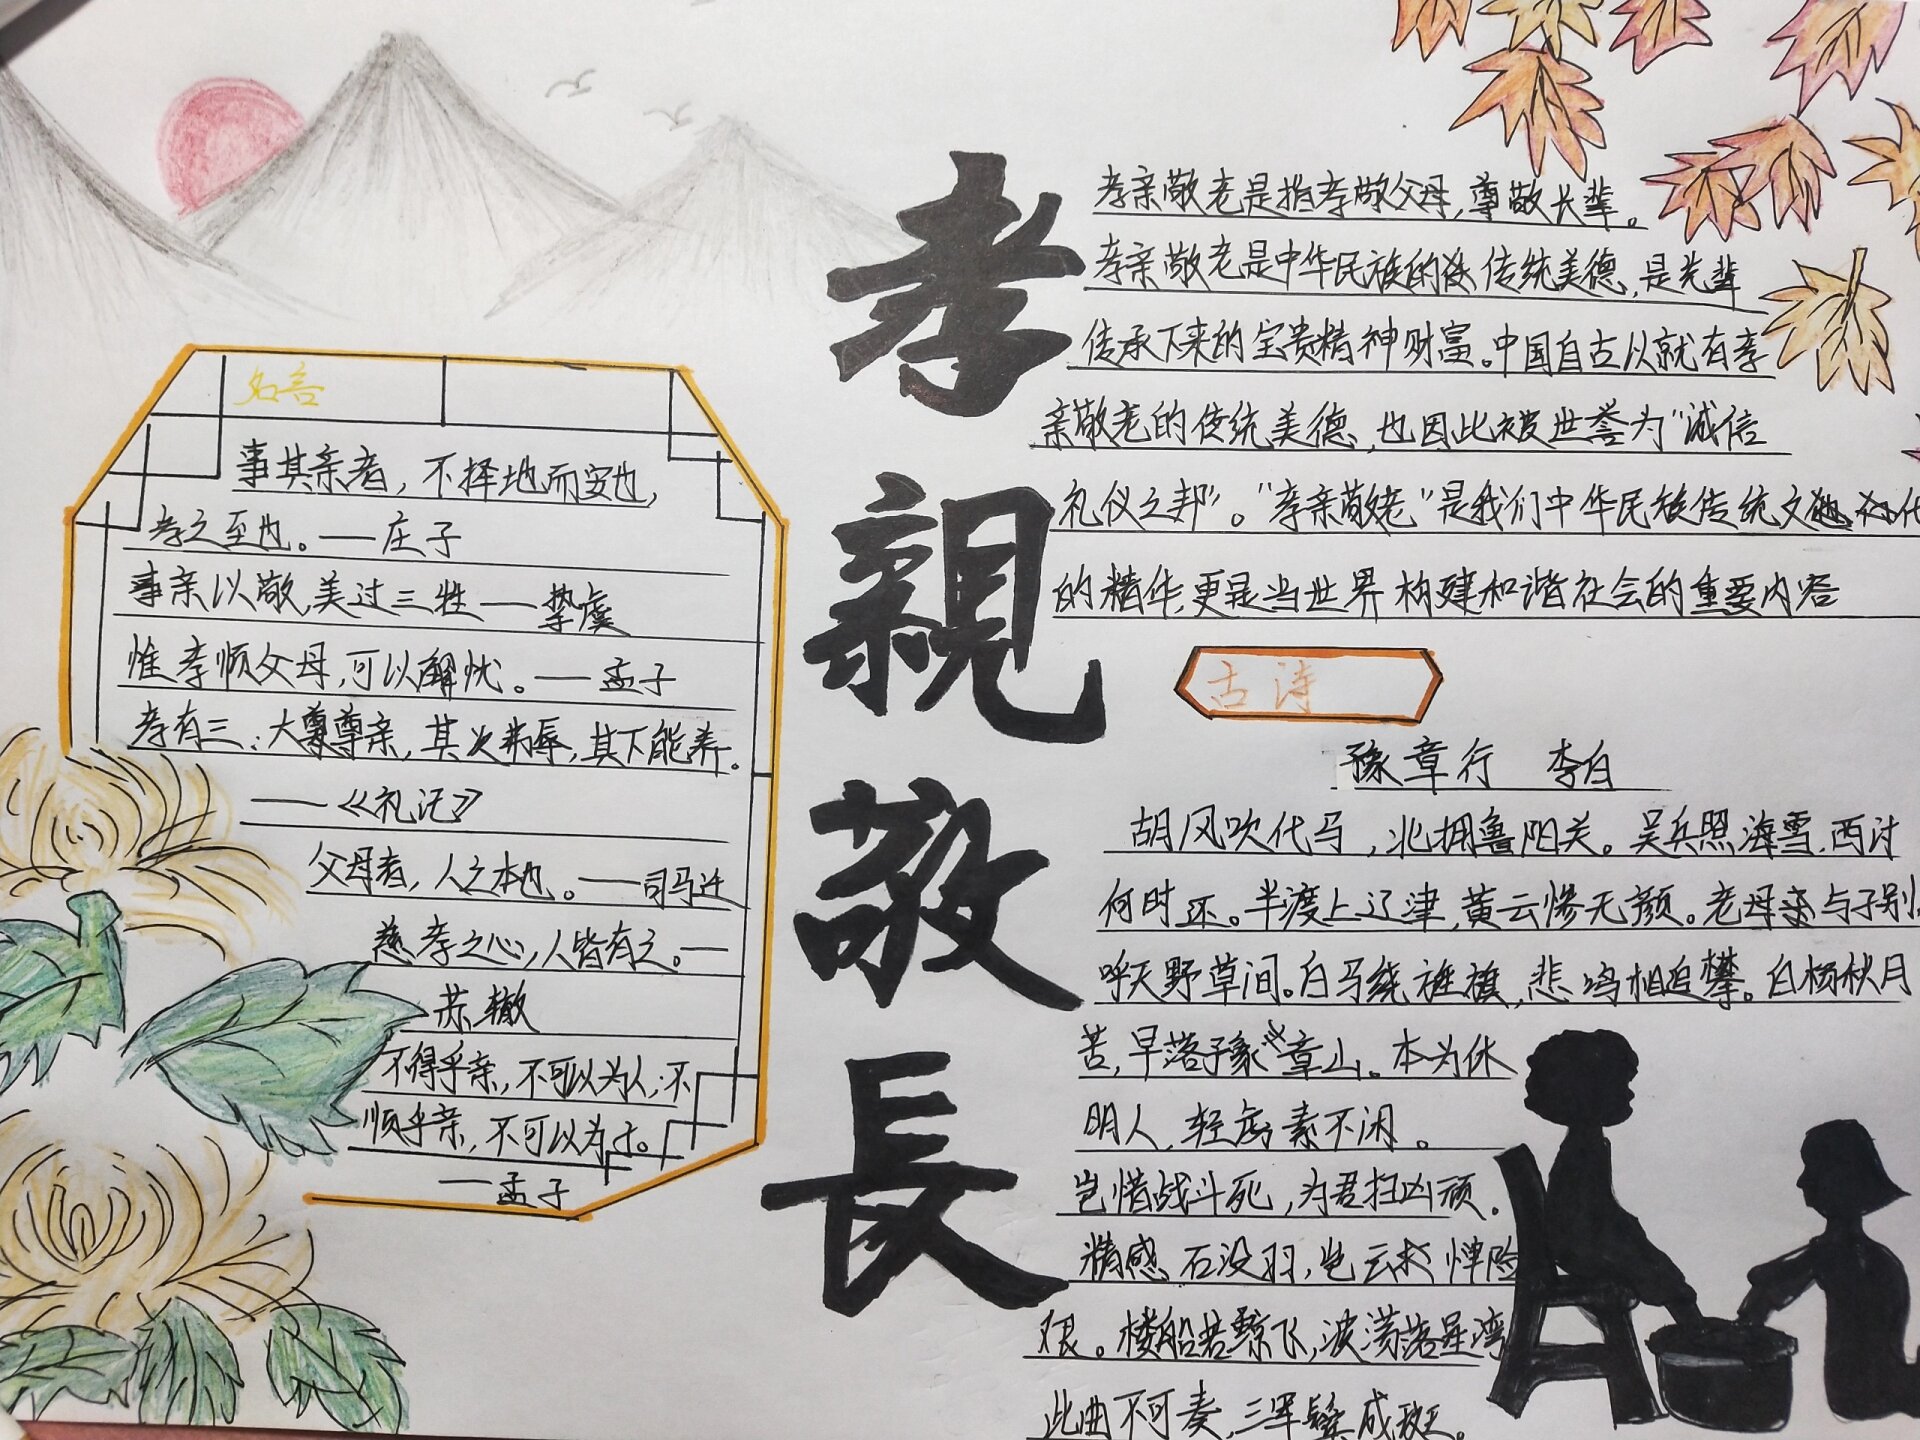 孝親敬長
名言
事其亲者，不择地而安也，
孝之至也。——庄子
事亲以敬,美过三牲——挚虞
惟孝顺父母,可以解忧。——孟子
孝有三：大尊尊亲，其次弗辱，其下能养。
——《礼记》
父母者，人之本也。——司马迁
慈孝之心，人皆有之。—
苏辙
不得乎亲，不可以为人；不
顺乎亲，不可以为子。
—孟子
孝亲敬老是指孝敬父母,尊敬长辈。
孝亲敬老是中华民族的传统美德，是先辈
传承下来的宝贵精神财富。中国自古以就有孝
亲敬老的传统美德，也因此被世誉为“诚信
礼仪之邦”。“孝亲敬老”是我们中华民族传统文
的精华，更是当世界构建和谐社会的重要内容
古诗
豫章行 李白
胡风吹代马，北拥鲁阳关。吴兵照海雪，西讨
何时还。半渡上辽津，黄云惨无颜。老母与子别，
呼天野草间。白马绕旌旗，悲鸣相追攀。白杨秋月
苦，早落豫章山。本为休
明人，轻虏素不闲。
岂惜战斗死，为君扫凶顽。
精感石没羽，岂云 惮险
艰。楼船若鲸飞，波荡落星湾
此曲不可奏，三军鬓成斑。